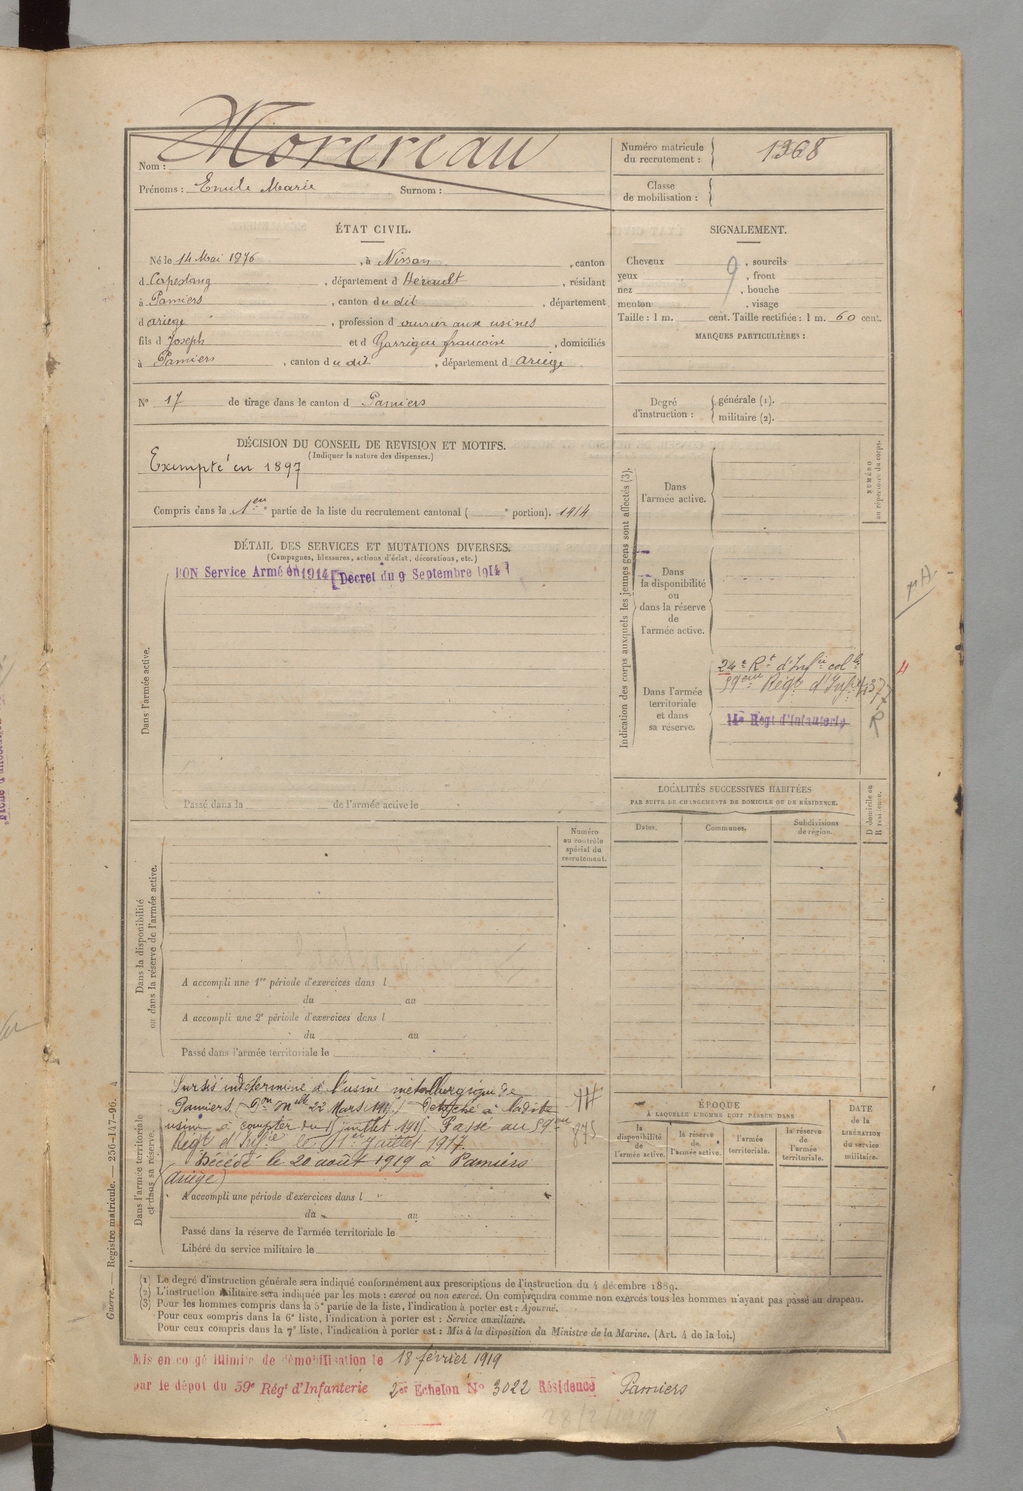 Nom : Morereau
Prénoms : Emile Marie Surnom :
Numéro matricule du recrutement : 1368
Classe de mobilisation :
ÉTAT CIVIL.
Né le 14 Mai 1876, à Nissan, canton
d Capestang, département d Hérault, résidant
à Pamiers, canton du dit, département
d ariège, profession d ouvrier aux usines
fils d Joseph et d Garrigue francoise, domiciliés
à Pamiers, canton du dit, département d ariège
N° 17 de tirage dans le canton d Pamiers
SIGNALEMENT.
Cheveux , sourcils
yeux , front
nez , bouche
menton , visage
Taille : 1 m. cent. Taille rectifiée : 1 m. 60 cent.
MARQUES PARTICULIÈRES :
Degré d'instruction : générale (1).
militaire (2).
DÉCISION DU CONSEIL DE REVISION ET MOTIFS.
(Indiquer la nature des dispenses.)
Exempté en 1897
Compris dans la 1ere partie de la liste du recrutement cantonal ( e portion). 1914
DÉTAIL DES SERVICES ET MUTATIONS DIVERSES.
(Campagnes, blessures, actions d'éclat, décorations, etc.)
BON Service Armé en 1914 [Décret du 9 Septembre 1914]
Dans l'armée active.
Passé dans la de l'armée active le
Indication des corps auxquels les jeunes gens sont affectés (3).
NUMÉRO au répertoire du corps.
Dans l'armée active.
Dans la disponibilité ou dans la réserve de l'armée active.
Dans l'armée territoriale et dans sa réserve.
24e Rt d'Infie colle
59eme Régt d'Infie
14e Régt d'Infanterie
R
LOCALITÉS SUCCESSIVES HABITÉES
PAR SUITE DE CHANGEMENTS DE DOMICILE OU DE RÉSIDENCE.
Dates. Communes. Subdivisions de région.
D domicile ou R résidence.
Numéro au contrôle spécial du recrutement.
Dans la disponibilité ou dans la réserve de l'armée active.
A accompli une 1re période d'exercices dans l
du au
A accompli une 2e période d'exercices dans l
du au
Passé dans l'armée territoriale le
Dans l'armée territoriale et dans sa réserve.
Sursis indéterminé à l'usine métallurgique de
Pamiers. 22 Mars Détaché à ladite
usine à compter du juillet Passé au 59eme
Régt d'Infie le 1er Juillet 1917
Décédé le 20 août 1919 à Pamiers
(ariège)
A accompli une période d'exercices dans l
du au
Passé dans la réserve de l'armée territoriale le
Libéré du service militaire le
ÉPOQUE
A LAQUELLE L'HOMME DOIT PASSER DANS
la disponibilité de l'armée active. la réserve de l'armée active. l'armée territoriale. la réserve de l'armée territoriale.
DATE de la LIBÉRATION du service militaire.
Guerre. — Registre matricule. — 256-147-96.
(1) Le degré d'instruction générale sera indiqué conformément aux prescriptions de l'instruction du 4 décembre 1889.
(2) L'instruction militaire sera indiquée par les mots : exercé ou non exercé. On comprendra comme non exercés tous les hommes n'ayant pas passé au drapeau.
(3) Pour les hommes compris dans la 5e partie de la liste, l'indication à porter est : Ajourné.
Pour ceux compris dans la 6e liste, l'indication à porter est : Service auxiliaire.
Pour ceux compris dans la 7e liste, l'indication à porter est : Mis à la disposition du Ministre de la Marine. (Art. 4 de la loi.)
Mis en congé illimité de démobilisation le 18 février 1919
par le dépôt du 59e Régt d'Infanterie 2er Echelon N° 3022 Résidence Pamiers
28/2/1919